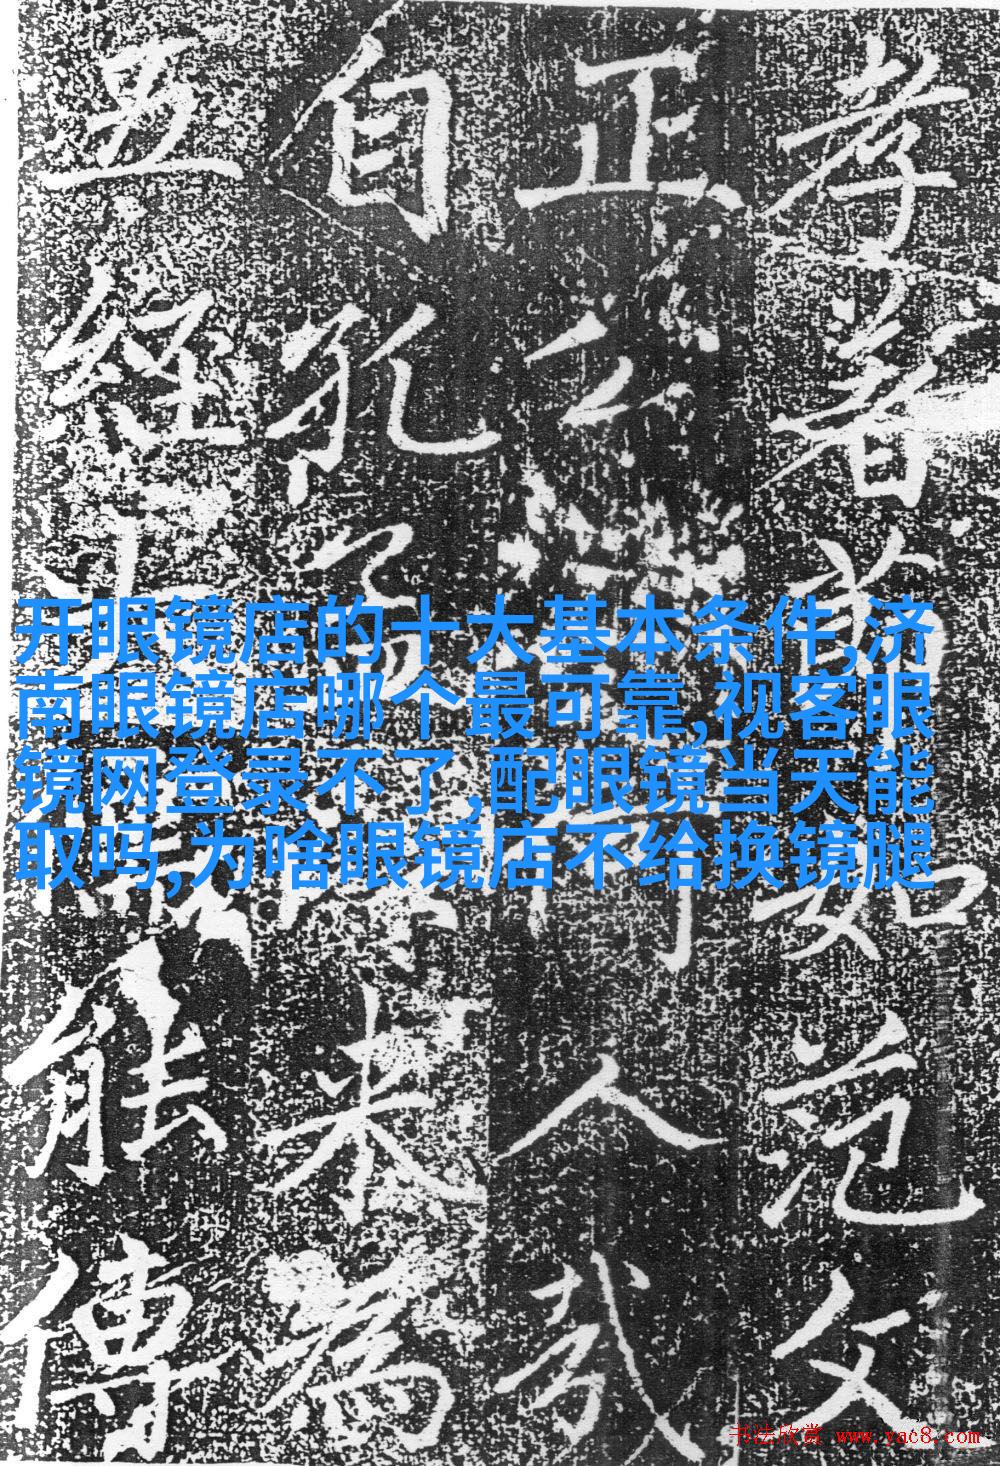 孝者荀
如范文
正公
可人哉
自孔子
来为
五经
能傅
开眼镜店的十大基本条件,济
南眼镜店哪个最可靠,视客眼
镜网登录不了,配眼镜当天能
取吗,为啥眼镜店不给换镜腿
书法欣赏 www.yac8.com